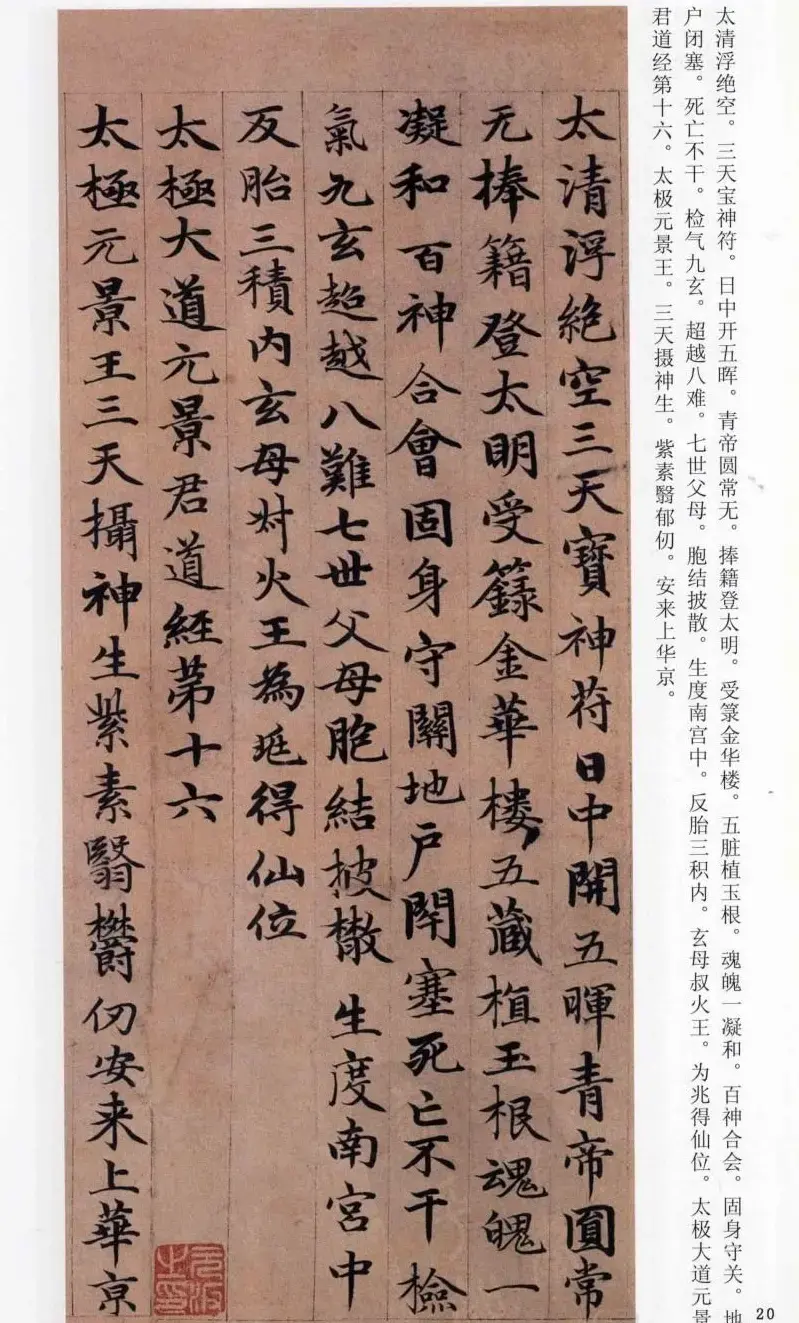 太清浮绝空。三天宝神符。日中开五晖。青帝圆常无。捧籍登太明。受箓金华楼。五脏植玉根。魂魄一凝和。百神合会。固身守关。地
户闭塞。死亡不干。检气九玄。超越八难。七世父母。胞结披散。生度南宫中。反胎三积内。玄母叔火王。为兆得仙位。太极大道元景
君道经第十六。太极元景王。三天摄神生。紫素翳郁仞。安来上华京。
太清浮絕空三天寶神苻日中開五暉青帝圓常
无捧籍登太明受籙金華樓五藏植玉根魂魄一
凝和百神合會固身守關地户閇塞死亡不干檢
氣九玄超越八難七世父母胞結披散生度南宮中
反胎三積内玄母火王為得仙位
太極大道元景君道經第十六
太極元景王三天攝神生紫素翳欝仞安来上華京
20